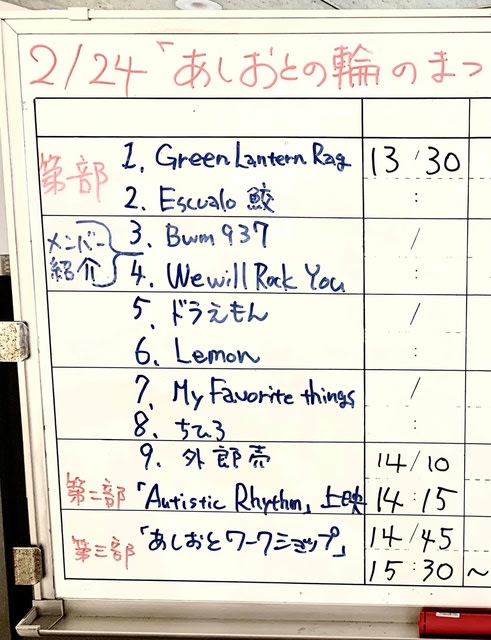 2/24「あしおとの輪のまつ
第一部 1. Green Lantern Rag 13:30
2. Escualo 鮫 :
メンバー紹介 3. Bwm 937 /
4. We will Rock You :
5. ドラえもん /
6. Lemon :
7. My Favorite things /
8. ちひろ :
9. 外郎売 14/10
第二部 「Autistic Rhythm」上映 14:15
第三部 「あしおとワークショップ」 14/45
15:30~